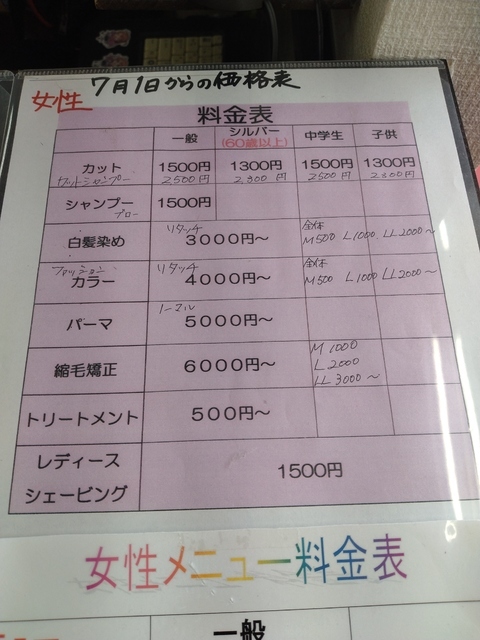 7月1日からの価格表
女性
料金表
一般 シルバー (60歳以上) 中学生 子供
カット 1500円 1300円 1500円 1300円
カットシャンプー 2500円 2300円 2500円 2300円
シャンプー ブロー 1500円
白髪染め リタッチ 3000円〜 全体 M500 L1000 LL2000〜
ファッションカラー リタッチ 4000円〜 全体 M500 L1000 LL2000〜
パーマ ノーマル 5000円〜
縮毛矯正 6000円〜 M 1000 L 2000 LL 3000〜
トリートメント 500円〜
レディース
シェービング 1500円
女性メニュー料金表
一般